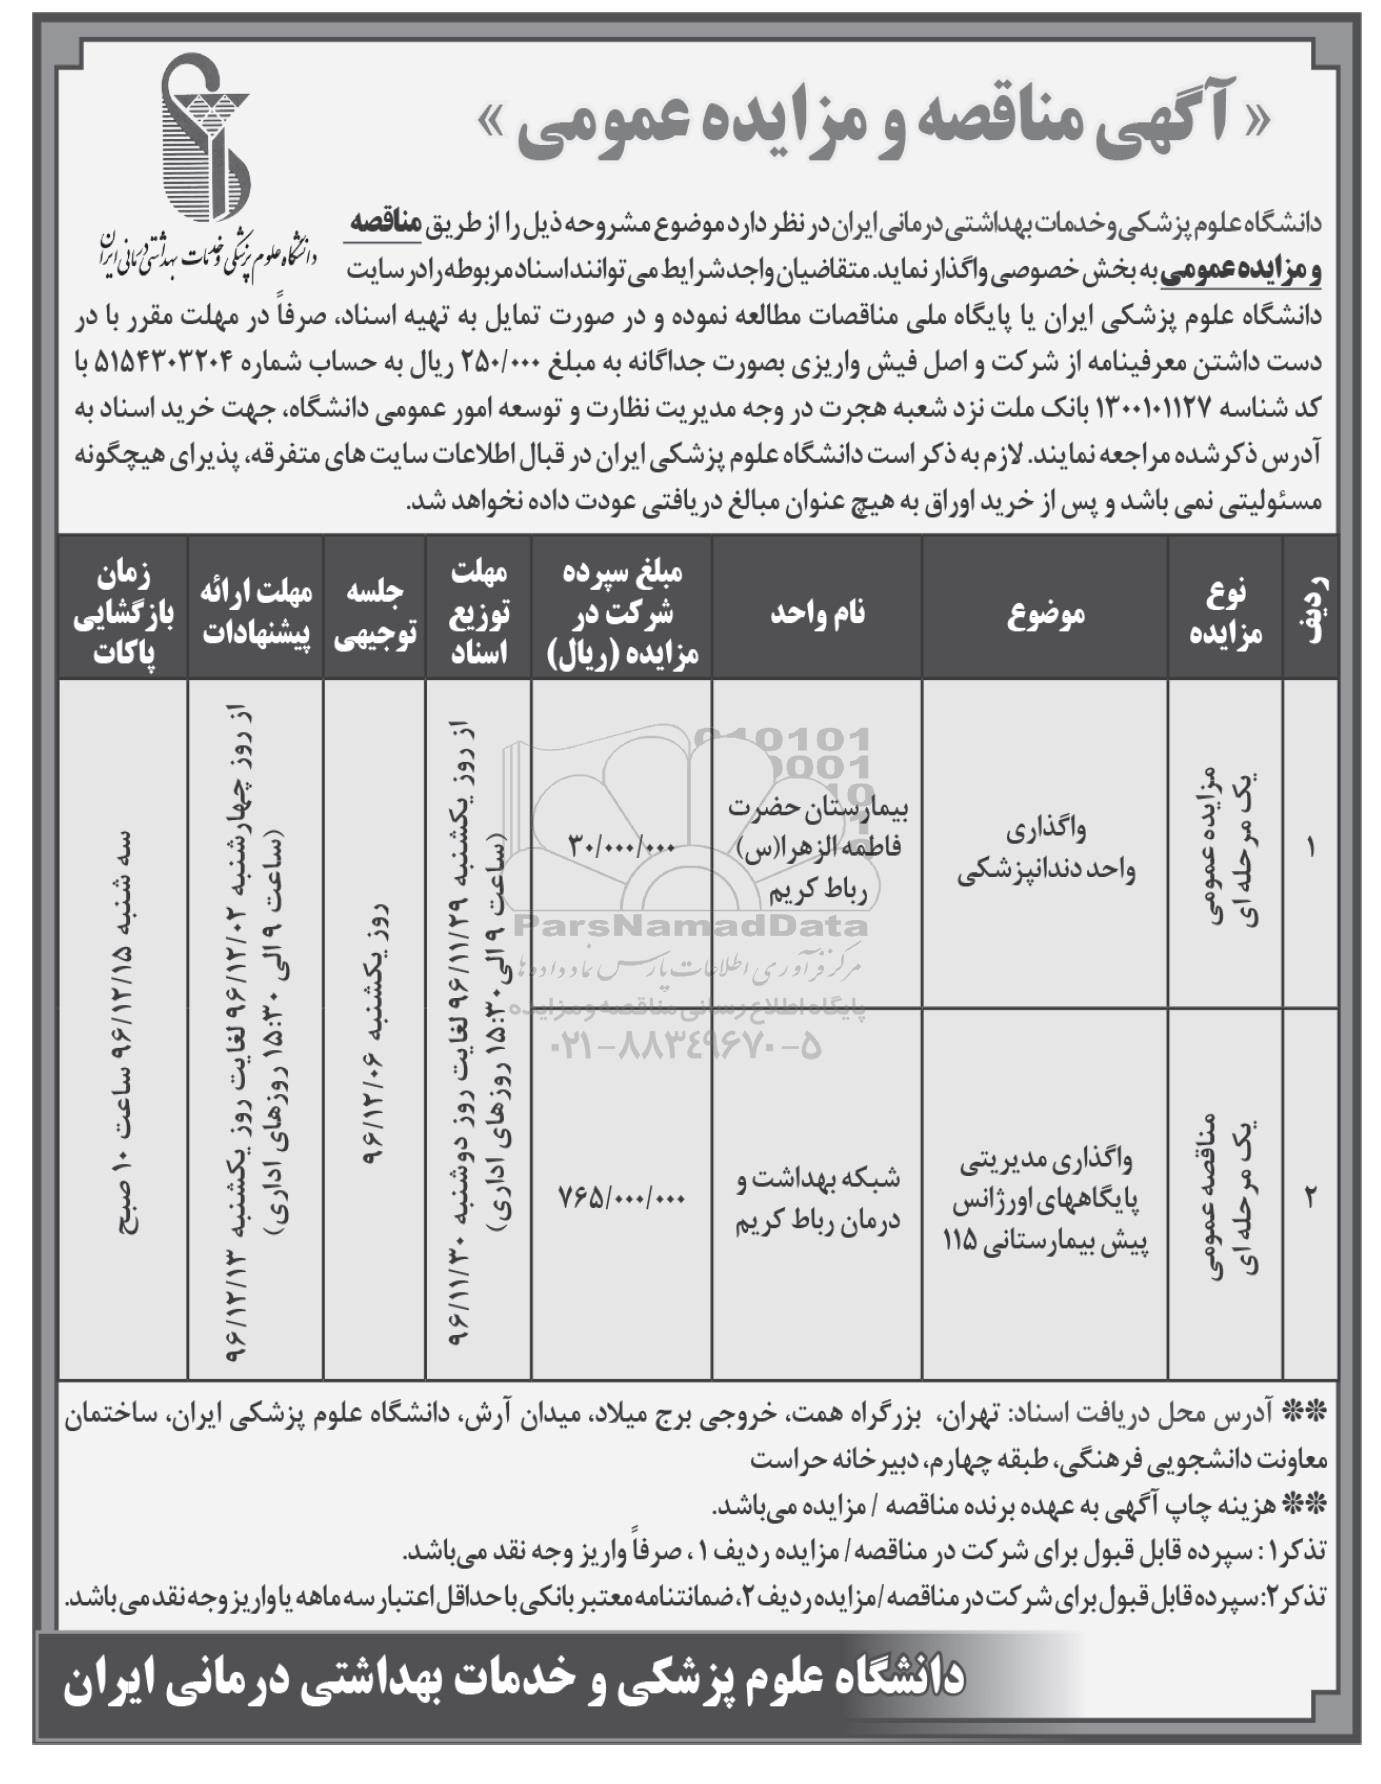 « آگهی مناقصه و مزایده عمومی »
دانشگاه علوم پزشکی و خدمات بهداشتی درمانی ایران
دانشگاه علوم پزشکی و خدمات بهداشتی درمانی ایران در نظر دارد موضوع مشروحه ذیل را از طریق مناقصه
و مزایده عمومی به بخش خصوصی واگذار نماید. متقاضیان واجد شرایط می توانند اسناد مربوطه را در سایت
دانشگاه علوم پزشکی ایران یا پایگاه ملی مناقصات مطالعه نموده و در صورت تمایل به تهیه اسناد، صرفاً در مهلت مقرر با در
دست داشتن معرفینامه از شرکت و اصل فیش واریزی بصورت جداگانه به مبلغ ۲۵۰/۰۰۰ ریال به حساب شماره ۵۱۵۴۳۰۳۲۰۴ با
کد شناسه ۱۳۰۰۱۰۱۱۲۷ بانک ملت نزد شعبه هجرت در وجه مدیریت نظارت و توسعه امور عمومی دانشگاه، جهت خرید اسناد به
آدرس ذکر شده مراجعه نمایند. لازم به ذکر است دانشگاه علوم پزشکی ایران در قبال اطلاعات سایت های متفرقه، پذیرای هیچگونه
مسئولیتی نمی باشد و پس از خرید اوراق به هیچ عنوان مبالغ دریافتی عودت داده نخواهد شد.
ردیف
نوع
مزایده
موضوع
نام واحد
مبلغ سپرده
شرکت در
مزایده (ریال)
مهلت
توزیع
اسناد
جلسه
توجیهی
مهلت ارائه
پیشنهادات
زمان
بازگشایی
پاکات
۱
مزایده عمومی
یک مرحله ای
واگذاری
واحد دندانپزشکی
بیمارستان حضرت
فاطمه الزهرا(س)
رباط کریم
۳۰/۰۰۰/۰۰۰
از روز یکشنبه ۹۶/۱۱/۲۹ لغایت روز دوشنبه ۹۶/۱۱/۳۰
(ساعت ۹ الی ۱۵:۳۰ روزهای اداری)
روز یکشنبه ۹۶/۱۲/۰۶
از روز چهارشنبه ۹۶/۱۲/۰۲ لغایت روز یکشنبه ۹۶/۱۲/۱۳
(ساعت ۹ الی ۱۵:۳۰ روزهای اداری)
سه شنبه ۹۶/۱۲/۱۵ ساعت ۱۰ صبح
۲
مناقصه عمومی
یک مرحله ای
واگذاری مدیریتی
پایگاههای اورژانس
پیش بیمارستانی ۱۱۵
شبکه بهداشت و
درمان رباط کریم
۷۶۵/۰۰۰/۰۰۰
ParsNamadData
مرکز فرآوری اطلاعات پارس نماد داده ها
پایگاه اطلاع رسانی مناقصه و مزایده
۰۲۱-۸۸۳۴۹۶۷۰-۵
** آدرس محل دریافت اسناد: تهران، بزرگراه همت، خروجی برج میلاد، میدان آرش، دانشگاه علوم پزشکی ایران، ساختمان
معاونت دانشجویی فرهنگی، طبقه چهارم، دبیرخانه حراست
** هزینه چاپ آگهی به عهده برنده مناقصه / مزایده می‌باشد.
تذکر۱: سپرده قابل قبول برای شرکت در مناقصه/ مزایده ردیف ۱، صرفاً واریز وجه نقد می‌باشد.
تذکر۲: سپرده قابل قبول برای شرکت در مناقصه/مزایده ردیف ۲، ضمانتنامه معتبر بانکی با حداقل اعتبار سه ماهه یا واریز وجه نقد می باشد.
دانشگاه علوم پزشکی و خدمات بهداشتی درمانی ایران